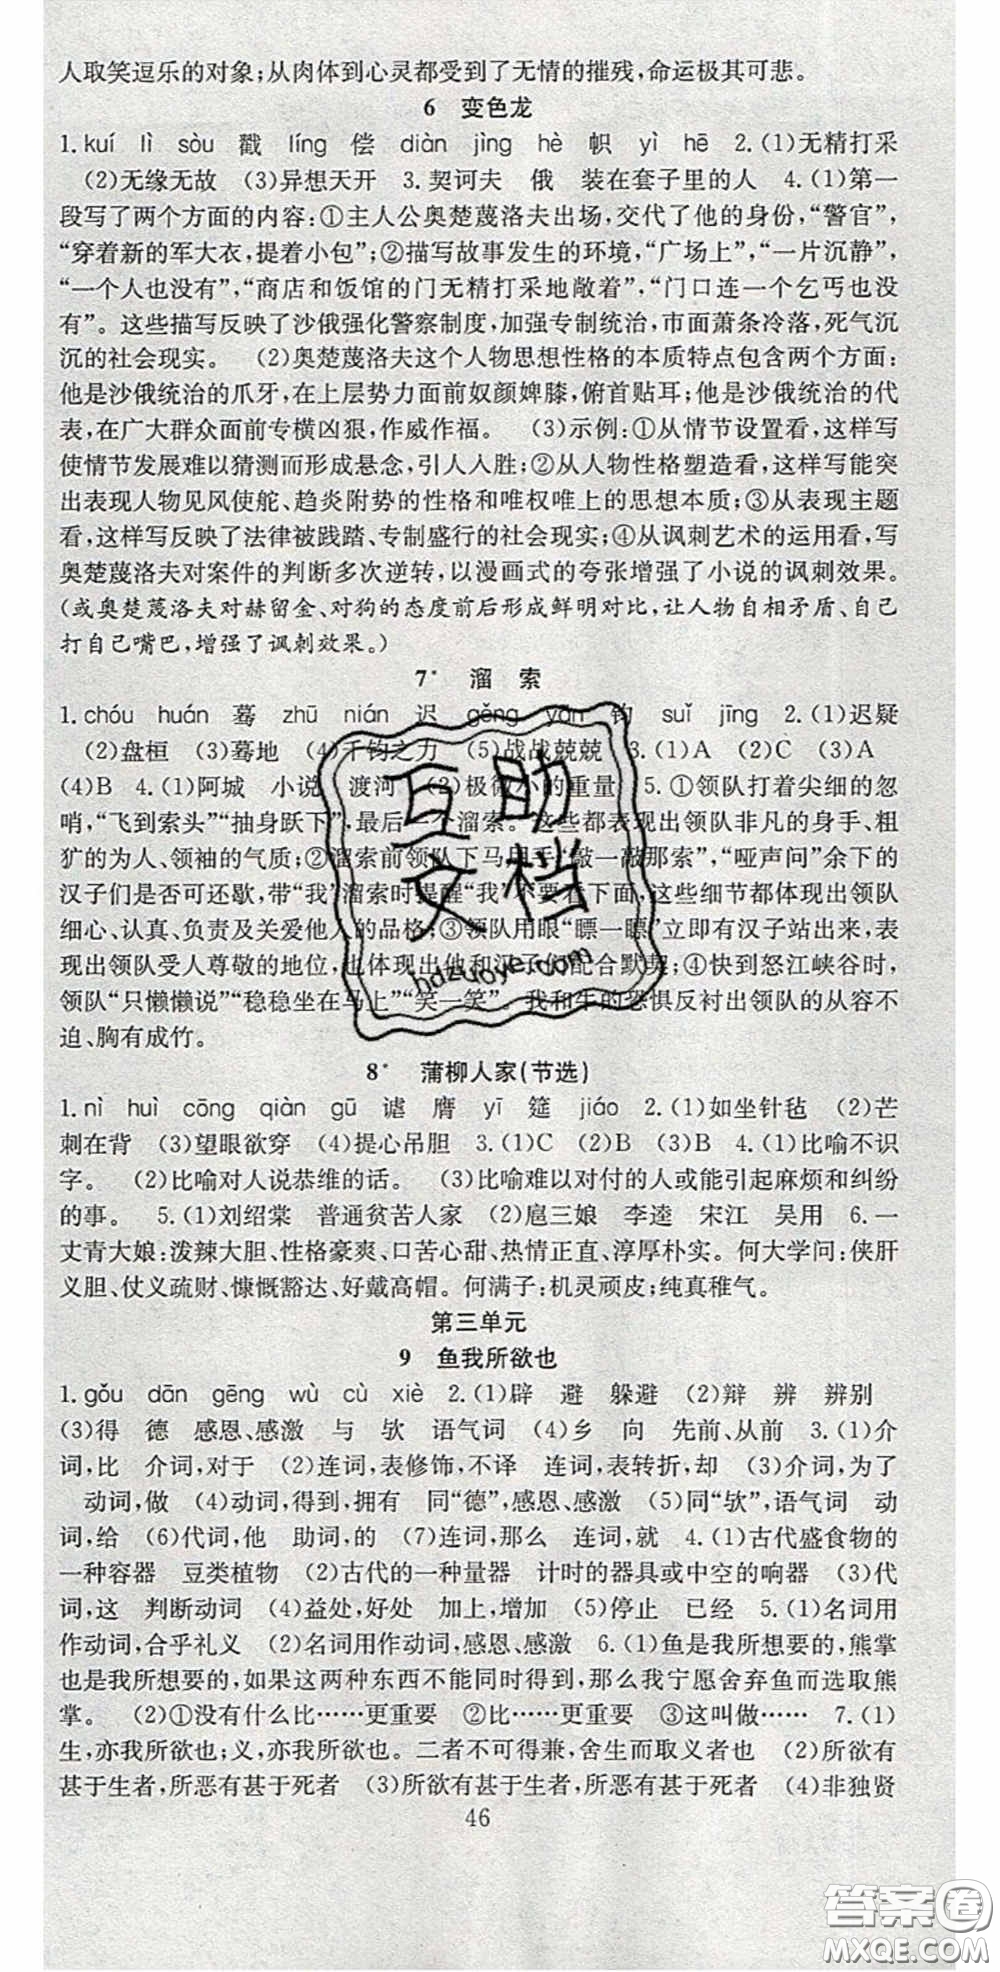 人取笑逗乐的对象;从肉体到心灵都受到了无情的摧残,命运极其可悲。
6 变色龙
1.kuí lì sòu 戳 líng 偿 diàn jìng hè 帜 yì hē 2.(1)无精打采
(2)无缘无故 (3)异想天开 3.契诃夫 俄 装在套子里的人 4.(1)第一
段写了两个方面的内容:①主人公奥楚蔑洛夫出场,交代了他的身份,“警官”,
“穿着新的军大衣,提着小包”;②描写故事发生的环境,“广场上”,“一片沉静”,
“一个人也没有”,“商店和饭馆的门无精打采地敞着”,“门口连一个乞丐也没
有”。这些描写反映了沙俄强化警察制度,加强专制统治,市面萧条冷落,死气沉
沉的社会现实。 (2)奥楚蔑洛夫这个人物思想性格的本质特点包含两个方面:
他是沙俄统治的爪牙,在上层势力面前奴颜婢膝,俯首贴耳;他是沙俄统治的代
表,在广大群众面前专横凶狠,作威作福。 (3)示例:①从情节设置看,这样写
使情节发展难以猜测而形成悬念,引人入胜;②从人物性格塑造看,这样写能突
出表现人物见风使舵、趋炎附势的性格和唯权唯上的思想本质;③从表现主题
看,这样写反映了法律被践踏、专制盛行的社会现实;④从讽刺艺术的运用看,写
奥楚蔑洛夫对案件的判断多次逆转,以漫画式的夸张增强了小说的讽刺效果。
(或奥楚蔑洛夫对赫留金、对狗的态度前后形成鲜明对比,让人物自相矛盾、自己
打自己嘴巴,增强了讽刺效果。)
7* 溜 索
1.chóu huán 蓦 zhū nián 迟 gěng yǎn 钧 suǐ jīng 2.(1)迟疑
(2)盘桓 (3)蓦地 (4)千钧之力 (5)战战兢兢 3.(1)A (2)C (3)A
(4)B 4.(1)阿城 小说 渡河 (2)极微小的重量 5.①领队打着尖细的忽
哨,“飞到索头”“抽身跃下”,最后一个溜索。这些都表现出领队非凡的身手、粗
犷的为人、领袖的气质;②溜索前领队下马用手“敲一敲那索”,“哑声问”余下的
汉子们是否可还歇,带“我”溜索时提醒“我”不要看下面,这些细节都体现出领队
细心、认真、负责及关爱他人的品格;③领队用眼“瞟一瞟”立即有汉子站出来,表
现出领队受人尊敬的地位,也体现出他和汉子们配合默契;④快到怒江峡谷时,
领队“只懒懒说”“稳稳坐在马上”“笑一笑”,我和牛的恐惧反衬出领队的从容不
迫、胸有成竹。
8* 蒲柳人家(节选)
1.nì huì cōng qiàn gū 谑 膺 yī 筵 jiáo 2.(1)如坐针毡 (2)芒
刺在背 (3)望眼欲穿 (4)提心吊胆 3.(1)C (2)B (3)B 4.(1)比喻不识
字。 (2)比喻对人说恭维的话。 (3)比喻难以对付的人或能引起麻烦和纠纷
的事。 5.(1)刘绍棠 普通贫苦人家 (2)扈三娘 李逵 宋江 吴用 6.一
丈青大娘:泼辣大胆、性格豪爽、口苦心甜、热情正直、淳厚朴实。何大学问:侠肝
义胆、仗义疏财、慷慨豁达、好戴高帽。何满子:机灵顽皮;纯真稚气。
第三单元
9 鱼我所欲也
1.gǒu dān gēng wù cù xiè 2.(1)辟 避 躲避 (2)辩 辨 辨别
(3)得 德 感恩、感激 与 欤 语气词 (4)乡 向 先前、从前 3.(1)介
词,比 介词,对于 (2)连词,表修饰,不译 连词,表转折,却 (3)介词,为了
动词,做 (4)动词,得到,拥有 同“德”,感恩、感激 (5)同“欤”,语气词 动
词,给 (6)代词,他 助词,的 (7)连词,那么 连词,就 4.(1)古代盛食物的
一种容器 豆类植物 (2)古代的一种量器 计时的器具或中空的响器 (3)代
词,这 判断动词 (4)益处,好处 加上,增加 (5)停止 已经 5.(1)名词用
作动词,合乎礼义 (2)名词用作动词,感恩、感激 6.(1)鱼是我所想要的,熊掌
也是我所想要的,如果这两种东西不能同时得到,那么我宁愿舍弃鱼而选取熊
掌。 (2)①没有什么比……更重要 ②比……更重要 ③这叫做…… 7.(1)
生,亦我所欲也;义,亦我所欲也。二者不可得兼,舍生而取义者也 (2)所欲有
甚于生者,所恶有甚于死者 (3)所欲有甚于生者,所恶有甚于死者 (4)非独贤
46
互助文档
hdzuoye.com
答案圈
MXQE.COM